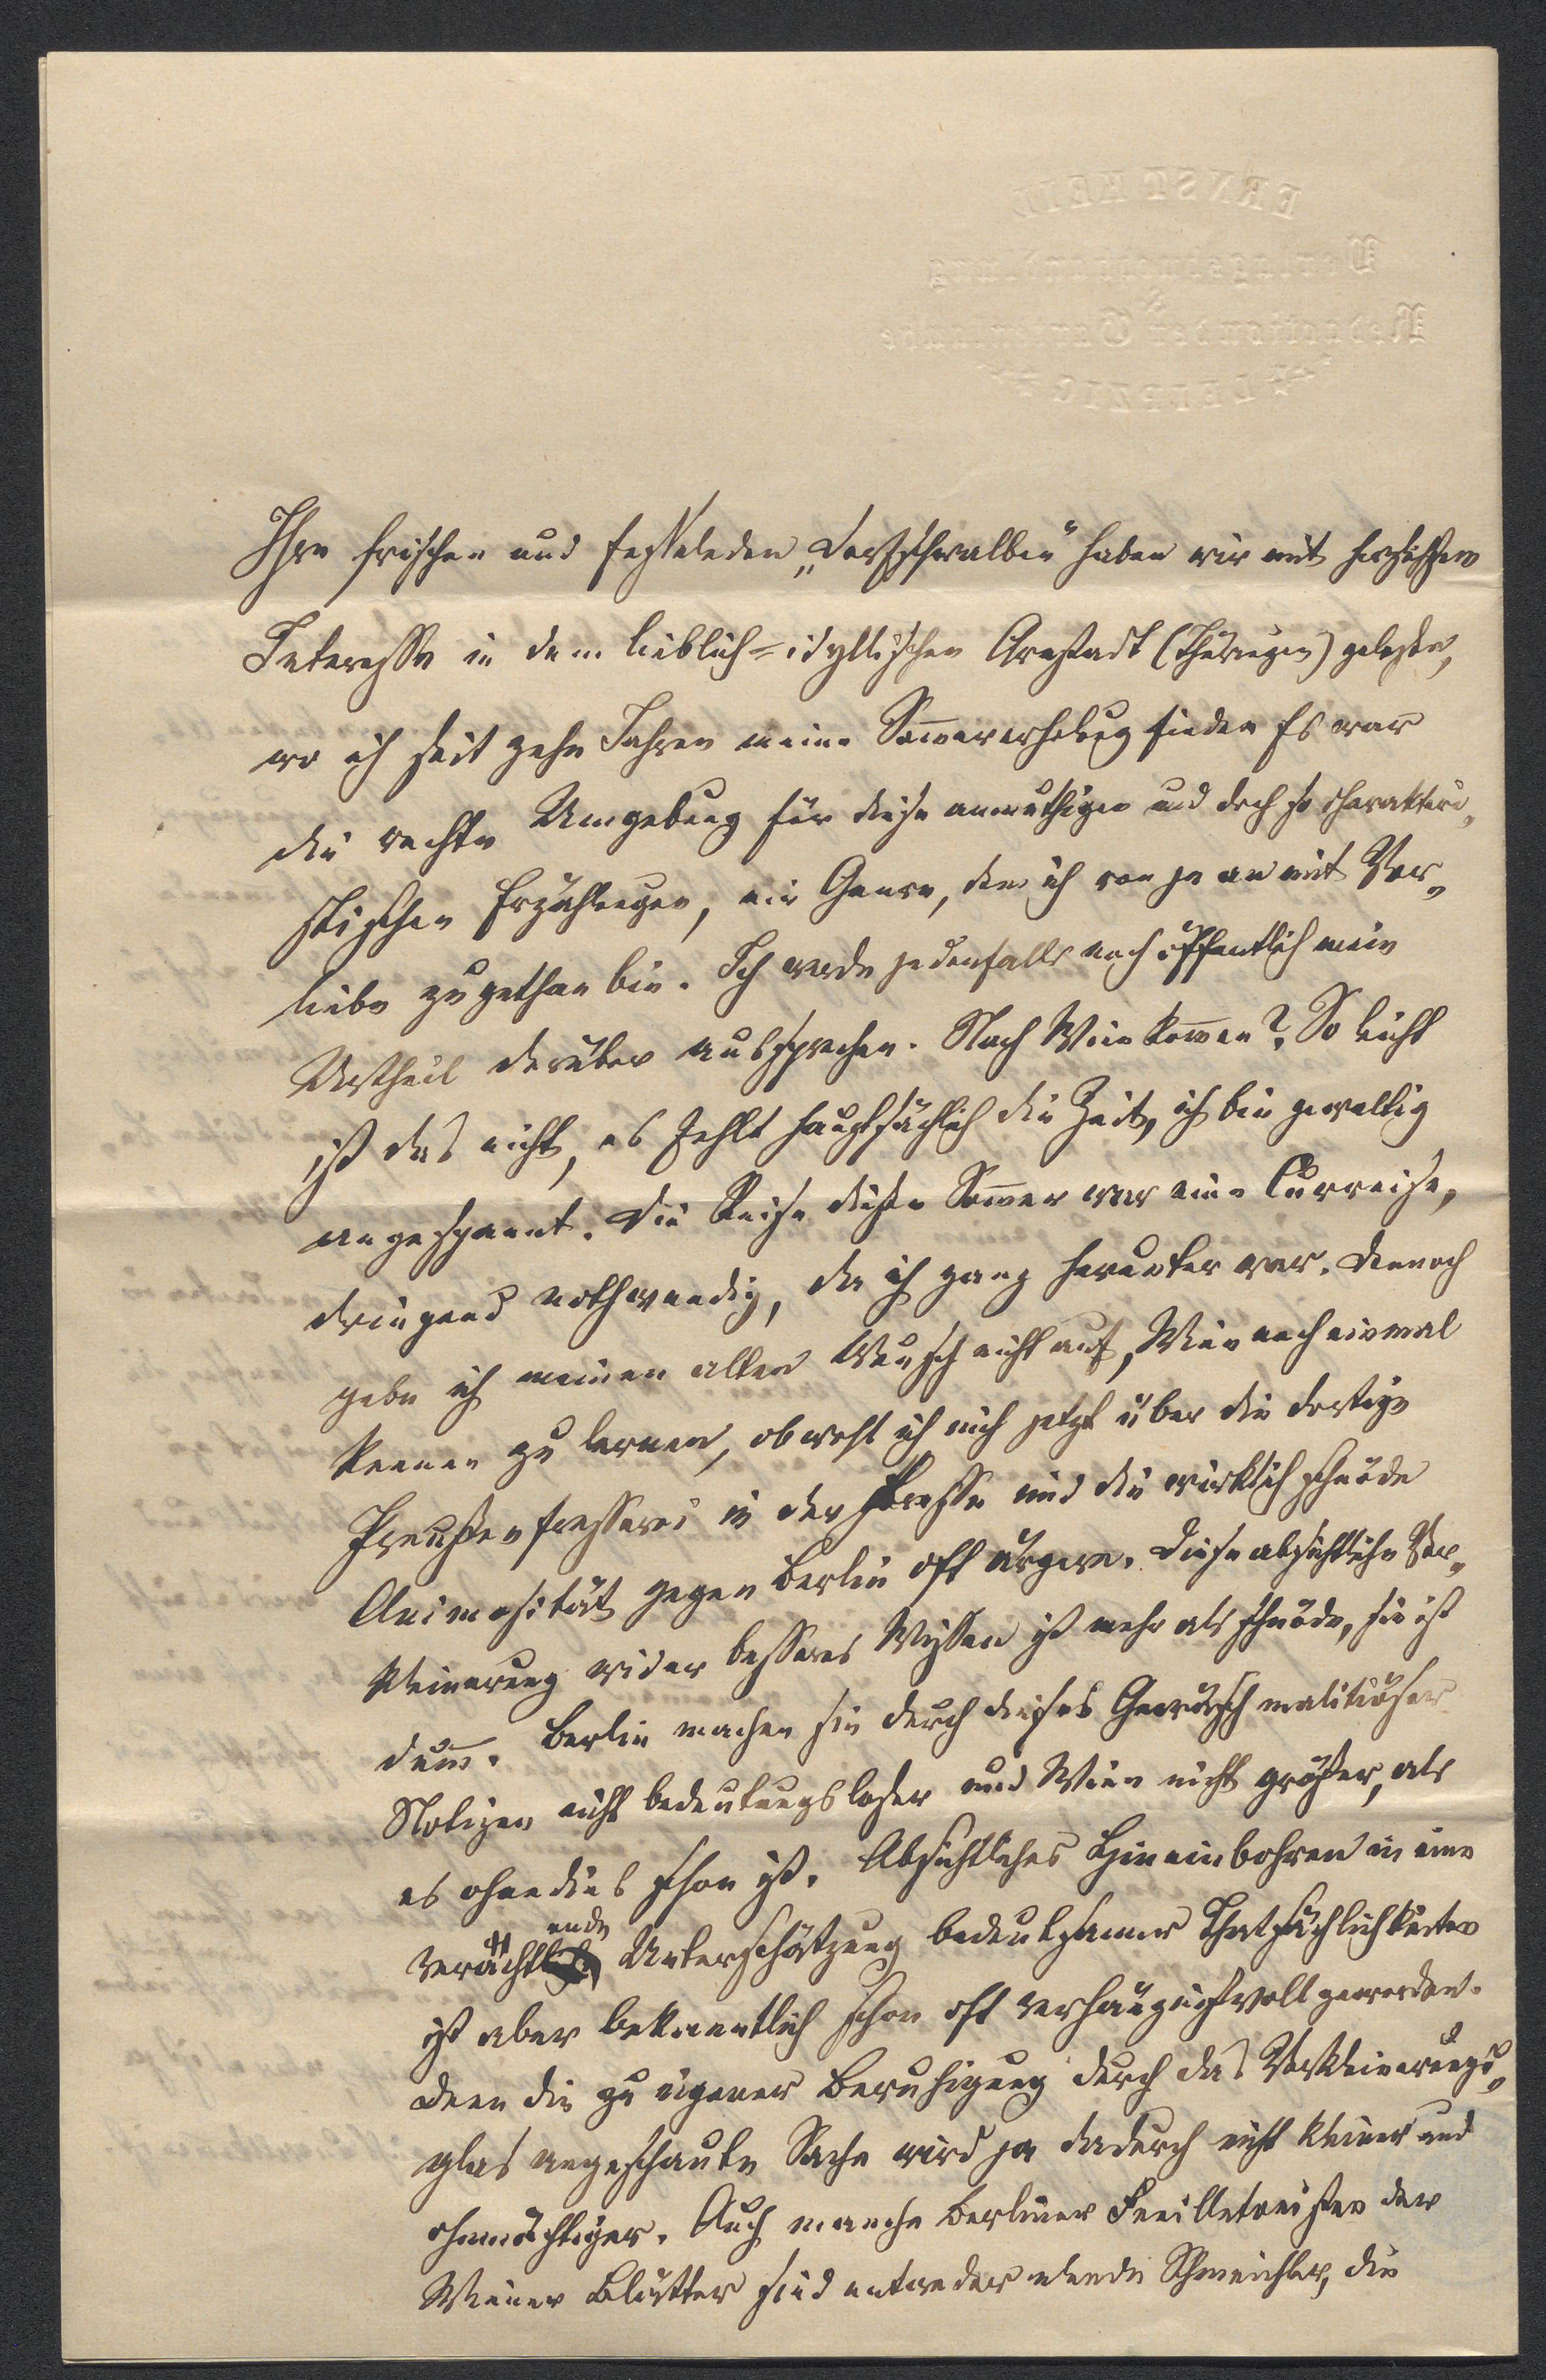 ERNST KEIL
Verlagsbuchhandlung
&
Redaction der Gartenlaube
LEIPZIG
Ihre frischen und fesselnden „Dorfschwalben“ haben wir mit herzlichem
Interesse in dem lieblich-idyllischen Arnstadt (Thüringen) gelesen,
wo ich seit zehn Jahren meine Som̄ererholung finde. Es war
die rechte Umgebung für diese anmuthigen und doch so charakteri-
stischen Erzählungen, ein Genre, dem ich von je an mit Vor-
liebe zugethan bin. Ich werde jedenfalls noch öffentlich mein
Urtheil darüber aussprechen. Nach Wien kom̄en? So leicht
ist das nicht, es fehlt hauptsächlich die Zeit, ich bin gewaltig
angespannt. Die Reise diesen Som̄er war eine Curreise,
dringend nothwendig, da ich ganz herunter war. Dennoch
gebe ich meinen alten Wunsch nicht auf, Wien noch einmal
kennen zu lernen, obwohl ich mich jetzt über die dortige
Preußenfresserei in der Presse und die wirklich schnöde
Animosität gegen Berlin oft ärgere. Diese absichtliche Ver-
kleinerung wider besseres Wissen ist mehr als schnöde, sie ist
dum̄. Berlin machen sie durch dieses Gewäsch malitiöser
Notizen nicht bedeutungsloser und Wien nicht größer, als
es ohnedies schon ist. Absichtliches Hineinbohren in eine
verächtlich ende Unterschätzung bedeutsamer Thatsächlichkeiten
ist aber bekanntlich schon oft verhängnißvoll geworden.
Denn die zu eigener Beruhigung durch das Verkleinerungs-
glas angeschaute Sache wird ja dadurch nicht kleiner und
ohnmächtiger. Auch manche Berliner Feuilletonisten der
Wiener Blätter sind entweder elende Schmeichler, die